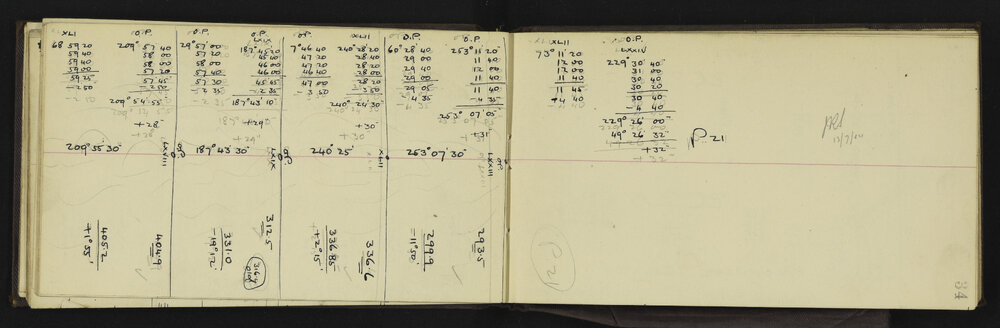 XLI O.P. O.P. LXIX O.P. XLII O.P. O.P.
68 59 20 209° 57 40 29° 57 00 187° 45 20 7° 46 40 240° 28 20 60° 28 40 253° 11 20
59 40 58 00 57 20 45 40 47 20 28 40 29 00 11 40
59 40 58 00 58 00 46 00 47 20 28 40 29 40 12 00
59 00 57 20 57 40 46 00 46 40 28 00 29 00 11 40
59 25 57 45 57 30 45 45 47 00 28 20 29 05 11 40
-2 50 -2 50 -2 35 -2 35 -3 50 -3 50 -4 35 -4 35
209° 54 55 187° 43' 10" 240° 24' 30 253° 07 05
+28" +29" +30 +31
209° 55' 30" 187° 43' 30 240° 25' 253° 07' 30"
LXVIII O.P. LXIX O.P. XLII LXXIII O.P.
405.2
+1° 55'
404.9
331.0
-19° 12'
312.5
316.4
336.85
+2° 15'
336.6
299.9
-11° 50'
293.5
XLII O.P.
LXXIV
73° 11' 20 229° 30 40
12 00 31 00
12 00 30 40
11 40 30 20
11 45 30 40
+4 40 -4 40
229° 26' 00"
49° 26 32
+32
P 21
12/7/
P 21
34